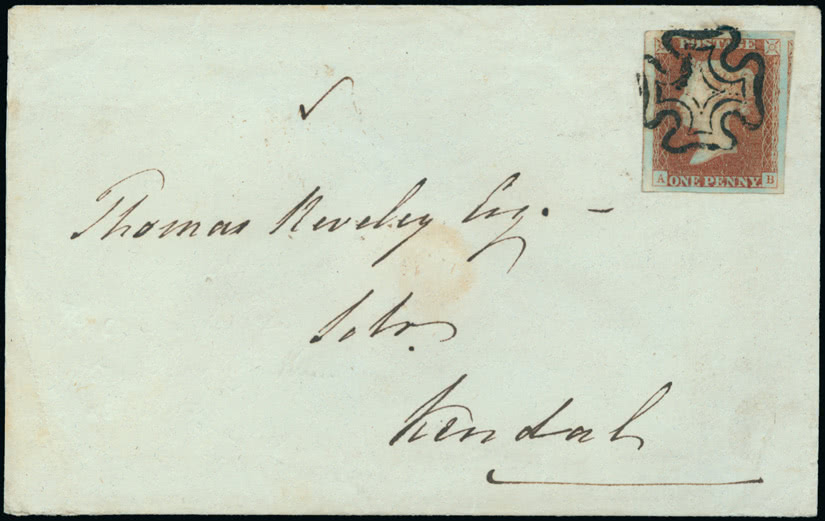 POSTAGE
A ONE PENNY. B
Thomas Reveley Esq. –
Solr.
Kendal